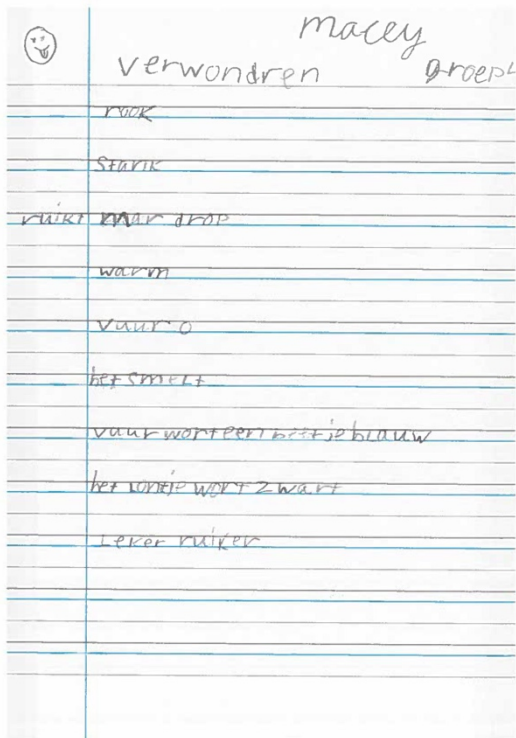 macey
verwondren groep
rook
Starik
ruikt naar drop
warm
vuur o
het smelt
vuur wort een beetje blauw
het lontje wort zwart
Leker ruiker